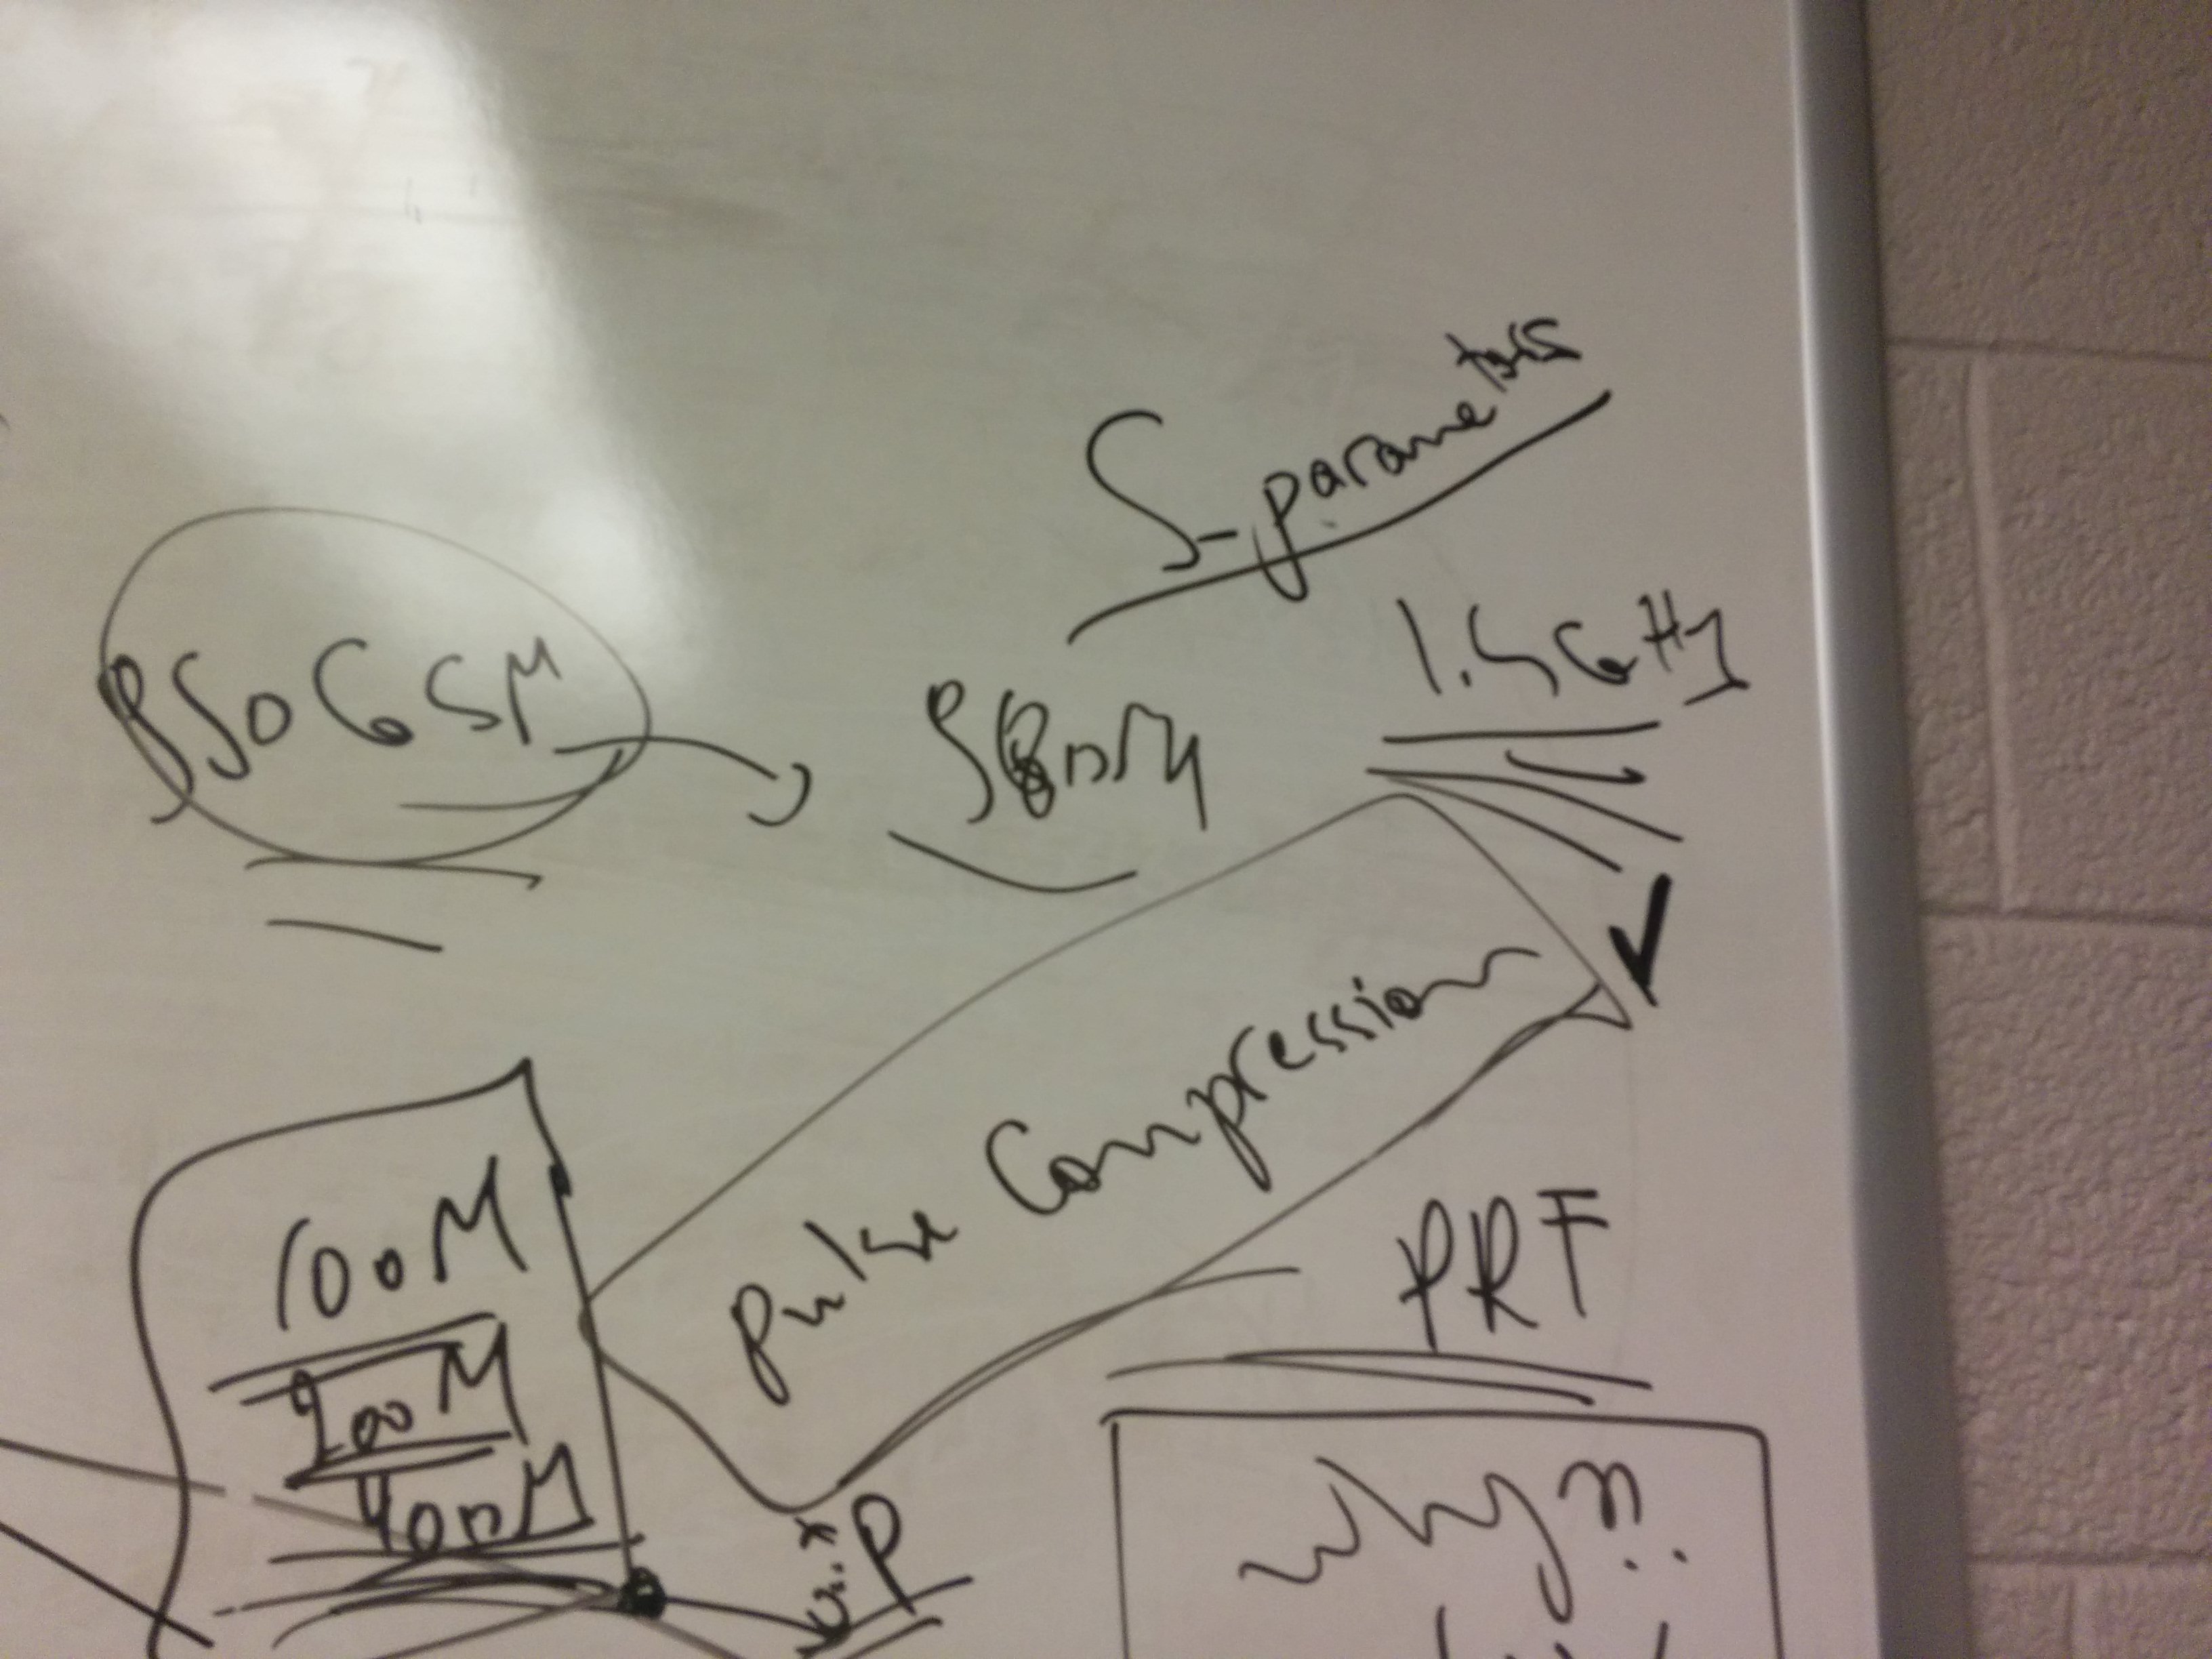 S-parameters
1.5GHz
950 GSM
Pulse Compression
PRF
100M
200M
400M
P
Why??